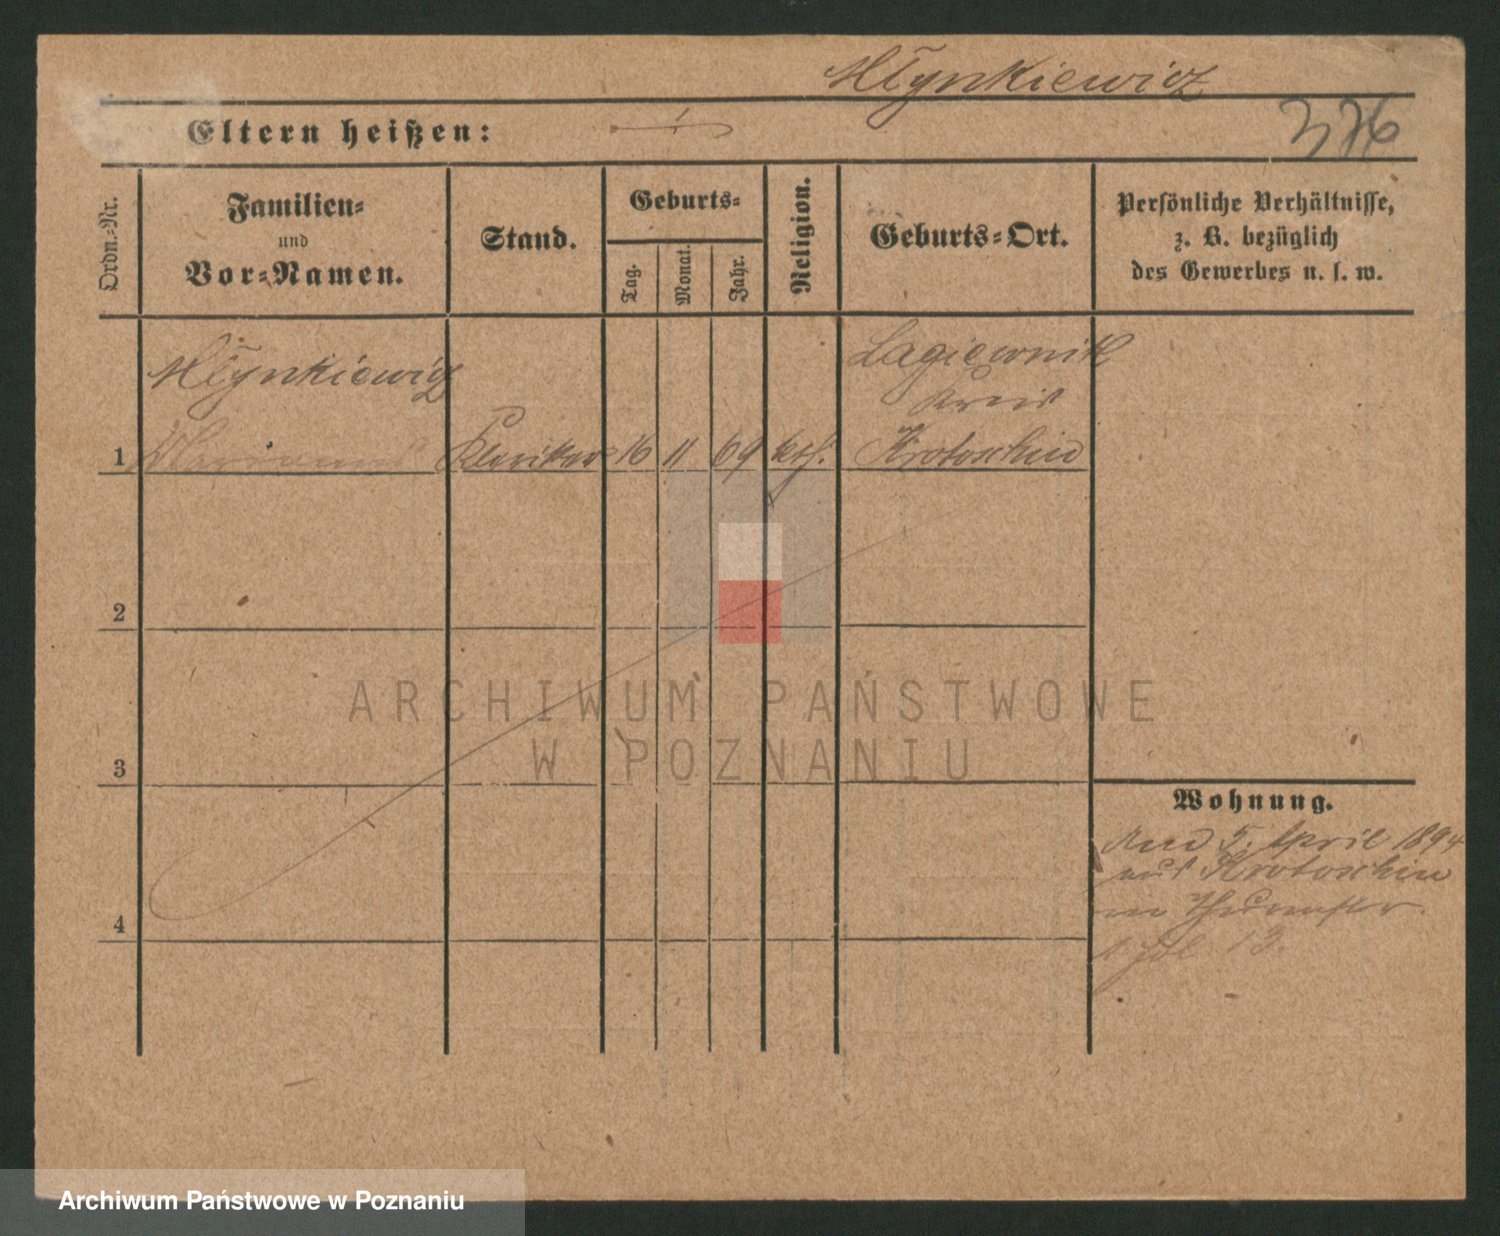 Młynkiewicz
Eltern heißen:
376
Ordn.-Nr.
Familien-
und
Vor-Namen.
Stand.
Geburts-
Tag.
Monat.
Jahr.
Religion.
Geburts-Ort.
Persönliche Verhältnisse,
z. B. bezüglich
des Gewerbes u. s. w.
Młynkiewicz
Lagiewnik
Kreis
1 Kleriker 16 11 69 kth. Krotoschin
2
3
4
Wohnung.
5. April 1894
aus Krotoschin
13.
ARCHIWUM PAŃSTWOWE
W POZNANIU
Archiwum Państwowe w Poznaniu